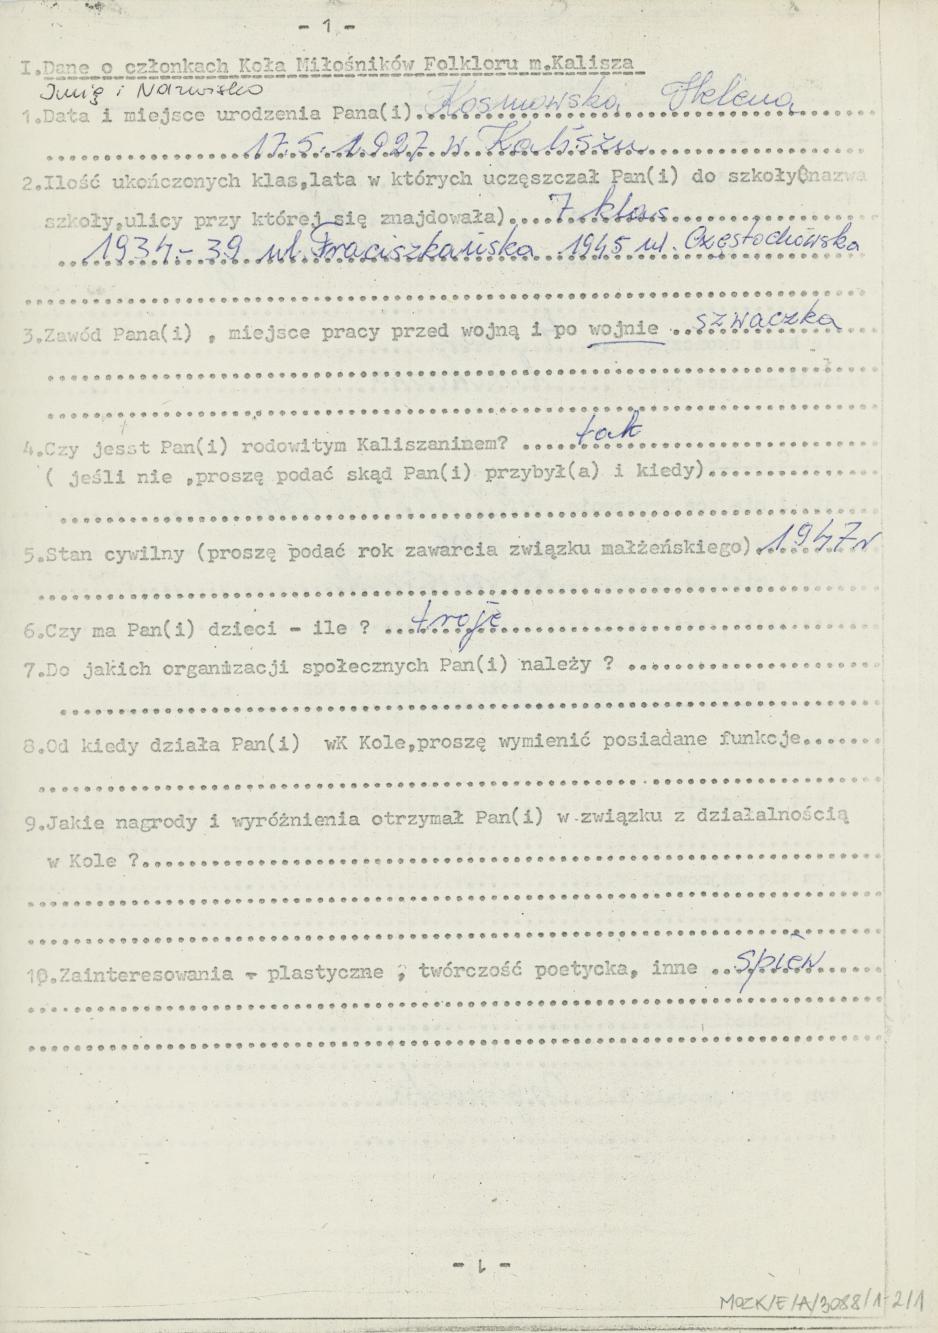 - 1 -
I.Dane o członkach Koła Miłośników Folkloru m.Kalisza
Imię i Nazwisko
1.Data i miejsce urodzenia Pana(i) Kosmowska Helena
17.5.1927 w Kaliszu
2.Ilość ukończonych klas,lata w których uczęszczał Pan(i) do szkoły(nazwa
szkoły,ulicy przy której się znajdowała) 7 klas
1934-39 ul. Fraciszkańska 1945 ul. Częstochowska
3.Zawód Pana(i) , miejsce pracy przed wojną i po wojnie szwaczka
4.Czy jesst Pan(i) rodowitym Kaliszaninem? tak
( jeśli nie ,proszę podać skąd Pan(i) przybył(a) i kiedy)
5.Stan cywilny (proszę podać rok zawarcia związku małżeńskiego) 1947 r
6.Czy ma Pan(i) dzieci - ile ? troje
7.Do jakich organizacji społecznych Pan(i) należy ?
8.Od kiedy działa Pan(i) wK Kole,proszę wymienić posiadane funkcje
9.Jakie nagrody i wyróżnienia otrzymał Pan(i) w związku z działalnością
w Kole ?
10.Zainteresowania - plastyczne , twórczość poetycka, inne śpiew
- 1 -
MOZK/E/A/3088/1-2/1